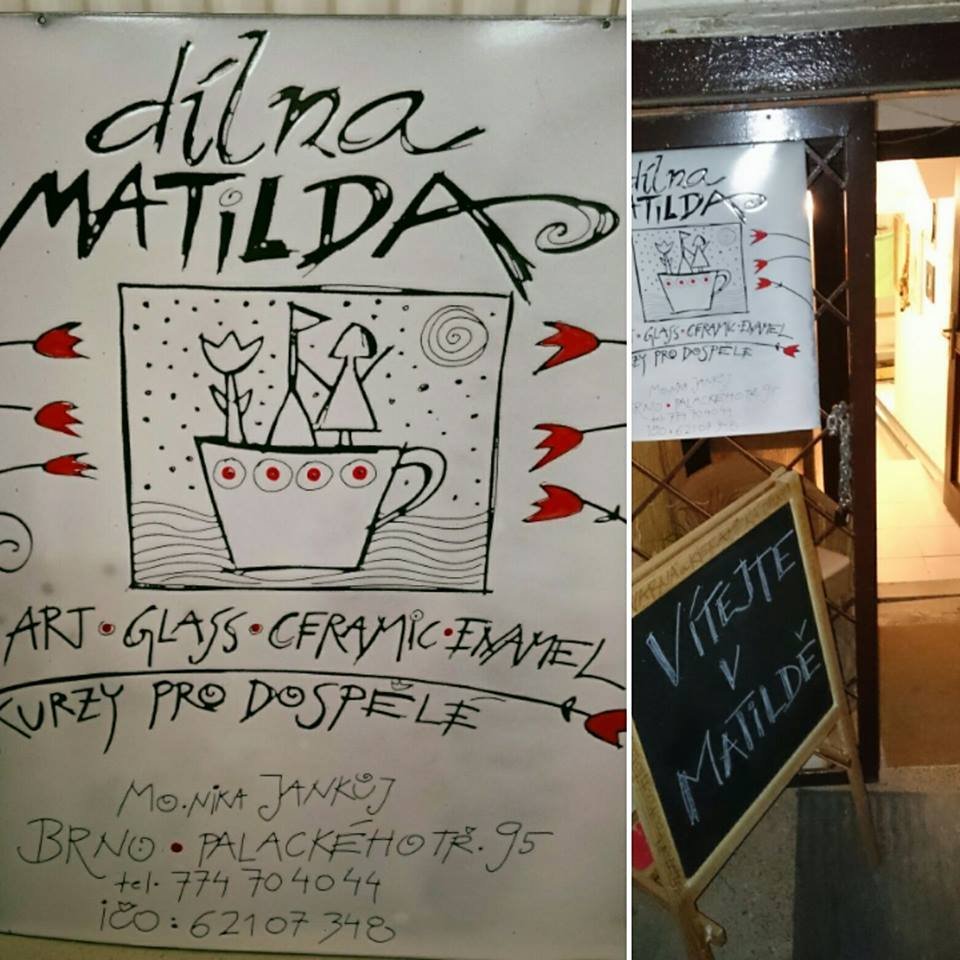 dílna
MATiLDA
ART • GLASS • CERAMiC • ENAMEL
KURZY PRO DOSPĚLÉ
MONiKA JANKŮJ
BRNO • PALACKÉHO TŘ. 95
tel. 774 704044
iČO: 62107 348
dílna
ATiLDA
GLASS • CERAMIC • ENAMEL
ZY PRO DOSPĚLÉ
MONiKA JANKŮJ
RNO • PALACKÉHO TŘ. 95
tel. 774 704044
iČO: 62107 348
VÍTEJTE
V
MATiLDĚ